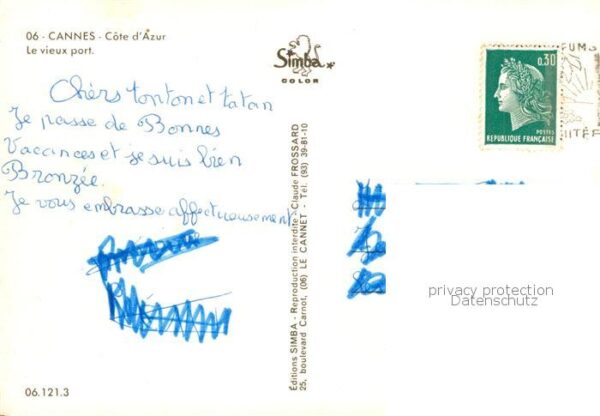 06 - CANNES - Côte d'Azur
Le vieux port.
Simba
COLOR
0,30
POSTES
REPUBLIQUE FRANÇAISE
FUMS
Chèrs tonton et tatan
Je passe de Bonnes
Vacances et je suis bien
Bronzée.
Je vous embrasse affectueusement
Éditions SIMBA - Reproduction interdite - Claude FROSSARD
25, boulevard Carnot, (06) LE CANNET - Tél. (93) 39-81-10
privacy protection
Datenschutz
06.121.3